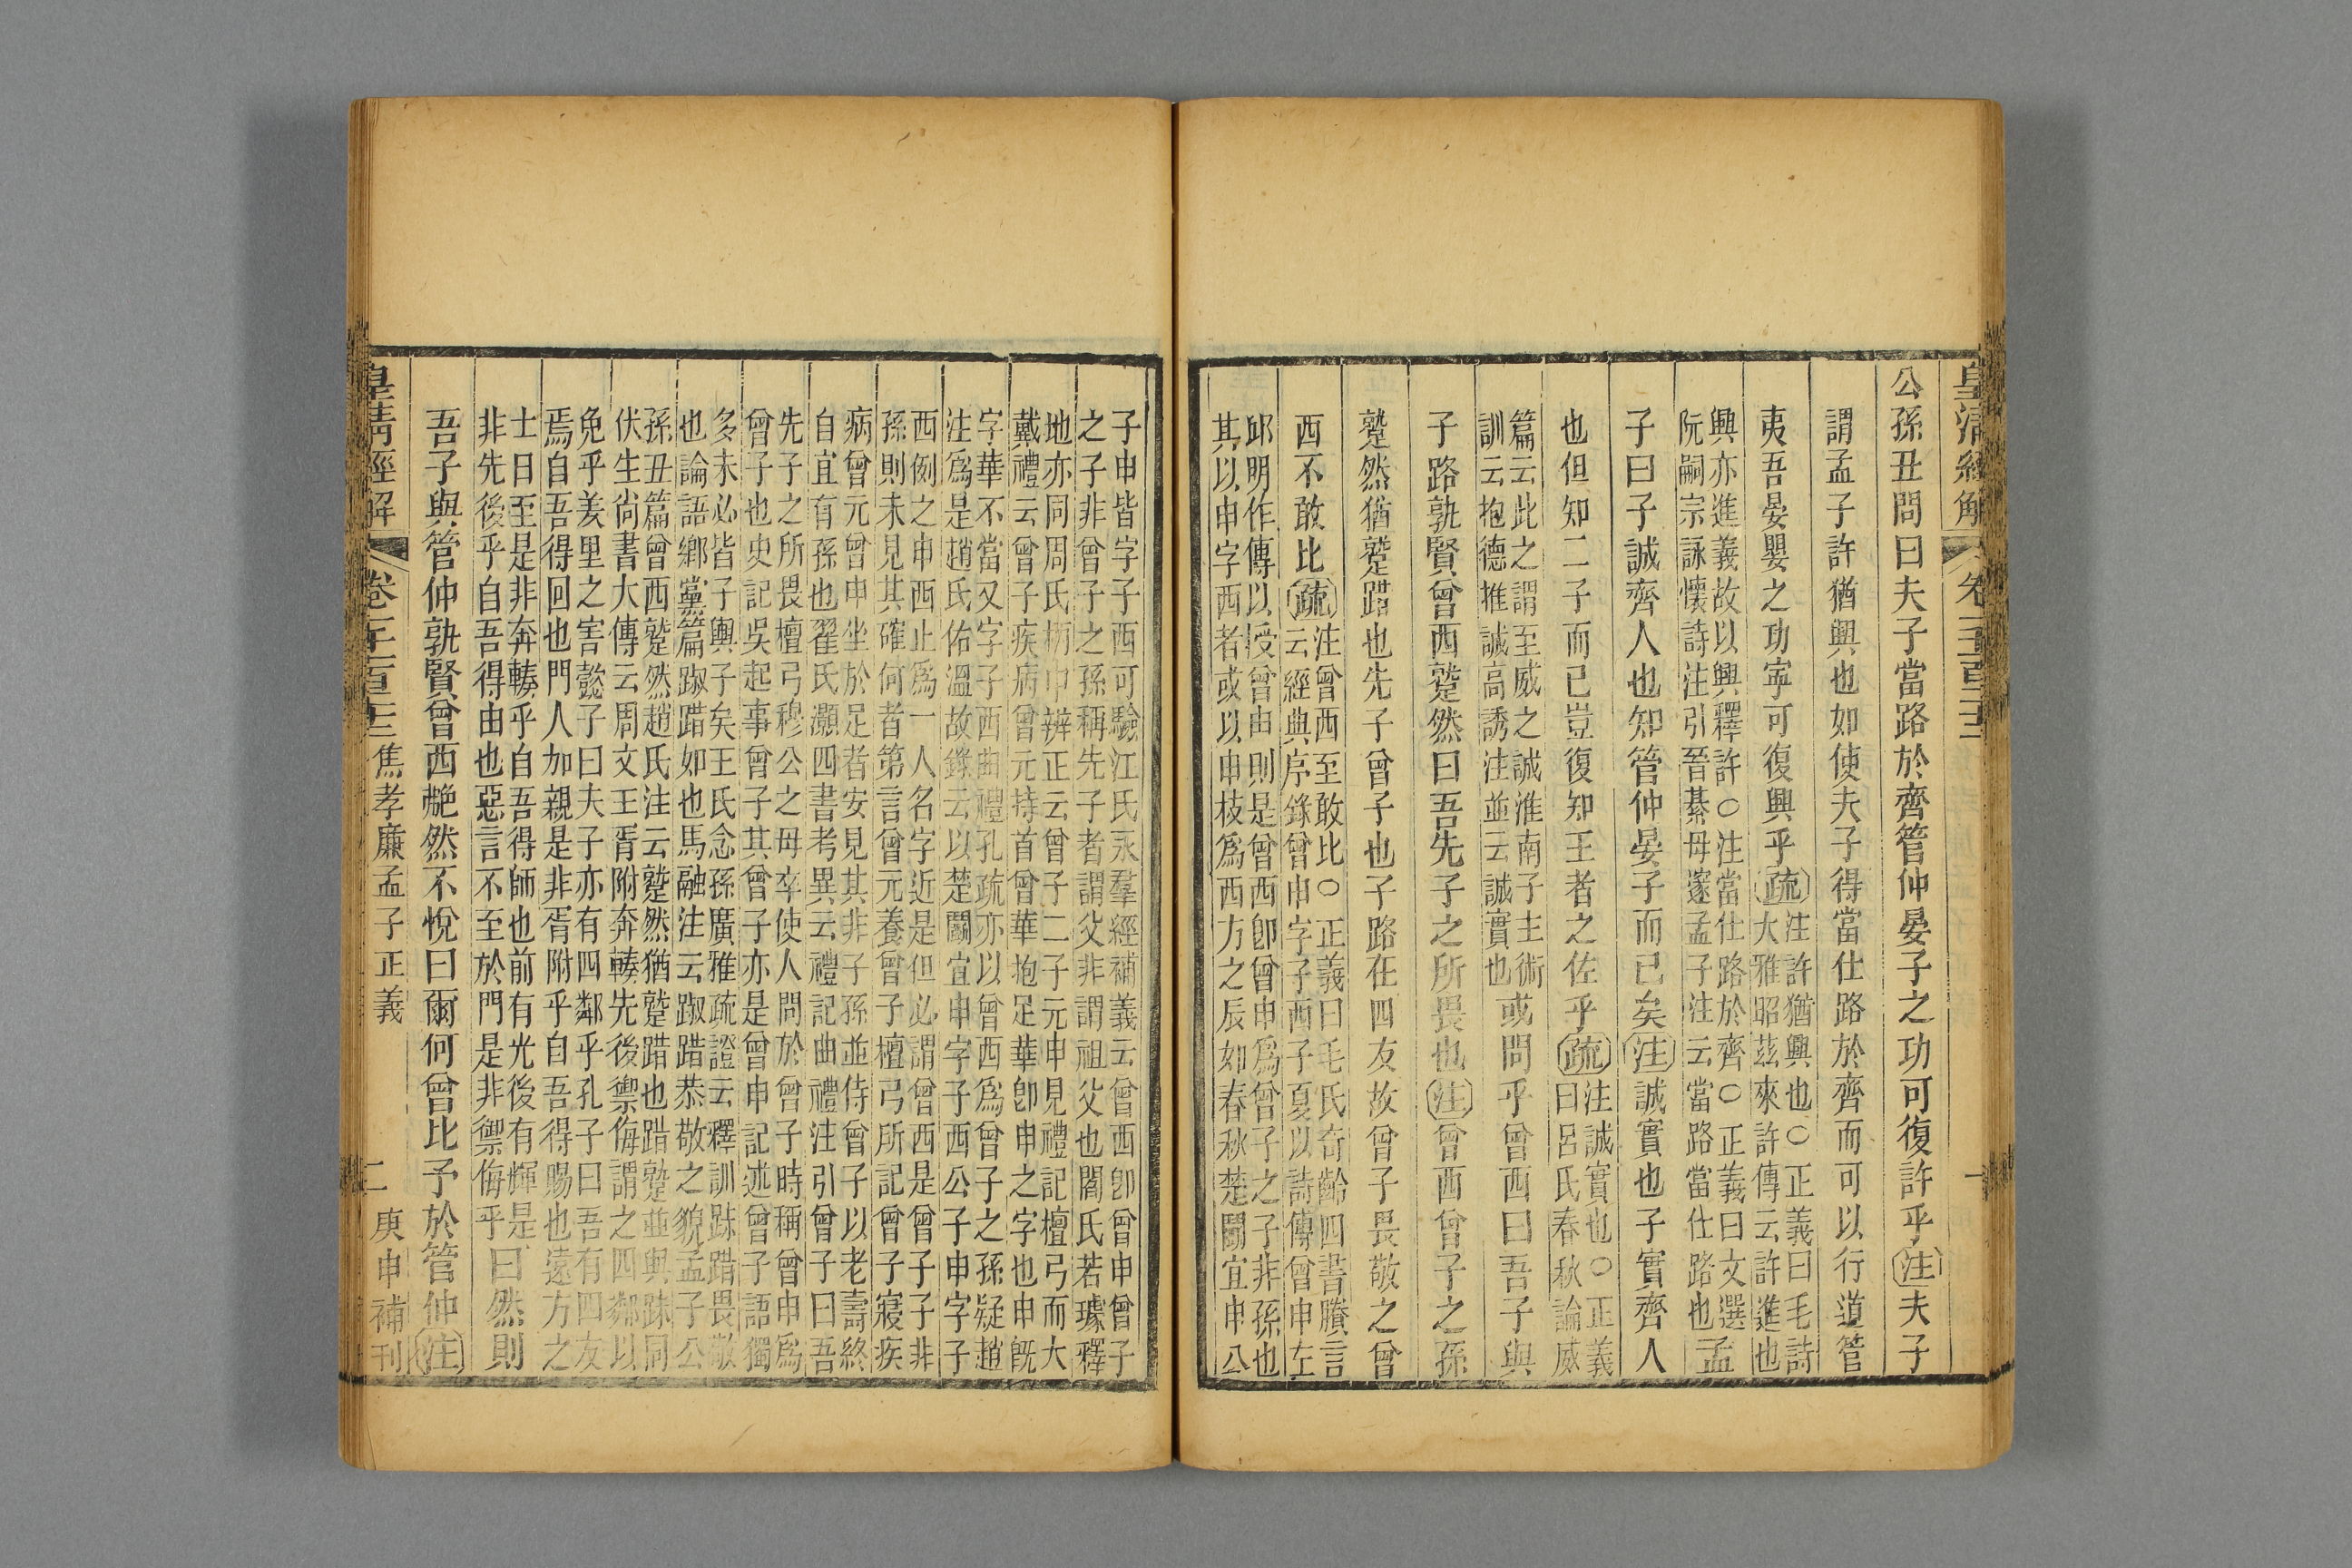 皇清經解
卷一千一百二十二
一
公孫丑問曰夫子當路於齊管仲晏子之功可復許乎注夫子
謂孟子許猶興也如使夫子得當仕路於齊而可以行道管
夷吾晏嬰之功寧可復興乎疏注許猶興也○正義曰毛詩
大雅昭茲來許傳云許進也
興亦進義故以興釋許○注當仕路於齊○正義曰文選
阮嗣宗詠懷詩注引晉綦母邃孟子注云當路當仕路也孟
子曰子誠齊人也知管仲晏子而已矣注誠實也子實齊人
也但知二子而已豈復知王者之佐乎疏注誠實也○正義
曰呂氏春秋論威
篇云此之謂至威之誠淮南子主術
訓云抱德推誠高誘注並云誠實也或問乎曾西曰吾子與
子路孰賢曾西蹵然曰吾先子之所畏也注曾西曾子之孫
蹵然猶蹵踖也先子曾子也子路在四友故曾子畏敬之曾
西不敢比疏注曾西至敢比○正義曰毛氏奇齡四書賸言
云經典序錄曾申字子西子夏以詩傳曾申左
邱明作傳以授曾申則是曾西卽曾申爲曾子之子非孫也
其以申字西者或以申枝爲西方之辰如春秋楚鬭宜申公
子申皆字子西可驗江氏永羣經補義云曾西卽曾申曾子
之子非曾子之孫稱先子者謂父非謂祖父也閻氏若璩釋
地亦同周氏柄中辨正云曾子二子元申見禮記檀弓而大
戴禮云曾子疾病曾元持首曾華抱足華卽申之字也申既
字華不當又字子西曲禮孔疏亦以曾西爲曾子之孫疑趙
注爲是趙氏佑溫故錄云以楚鬭宜申字子西公子申字子
西例之申西止爲一人名字近是但必謂曾西是曾子子非
孫則未見其確何者第言曾元養曾子檀弓所記曾子寢疾
病曾元曾申坐於足者安見其非子孫並侍曾子以老壽終
自宜有孫也翟氏灝四書考異云禮記曲禮注引曾子曰吾
先子之所畏檀弓穆公之母卒使人問於曾子時稱曾申爲
曾子也史記吳起事曾子其曾子亦是曾申記述曾子語獨
多未必皆子輿子矣王氏念孫廣雅疏證云釋訓踧踖畏敬
也論語鄉黨篇踧踖如也馬融注云踧踖恭敬之貌孟子公
孫丑篇曾西蹵然趙氏注云蹵然猶蹵踖也踖蹵並與踧同
伏生尚書大傳云周文王胥附奔輳先後禦侮謂之四鄰以
免乎羑里之害懿子曰夫子亦有四鄰乎孔子曰吾有四友
焉自吾得回也門人加親是非胥附乎自吾得賜也遠方之
士日至是非奔輳乎自吾得師也前有光後有輝是
非先後乎自吾得由也惡言不至於門是非禦侮乎曰然則
吾子與管仲孰賢曾西艴然不悅曰爾何曾比予於管仲注
皇清經解
卷一千一百二十二
焦孝廉孟子正義
二
庚申補刊